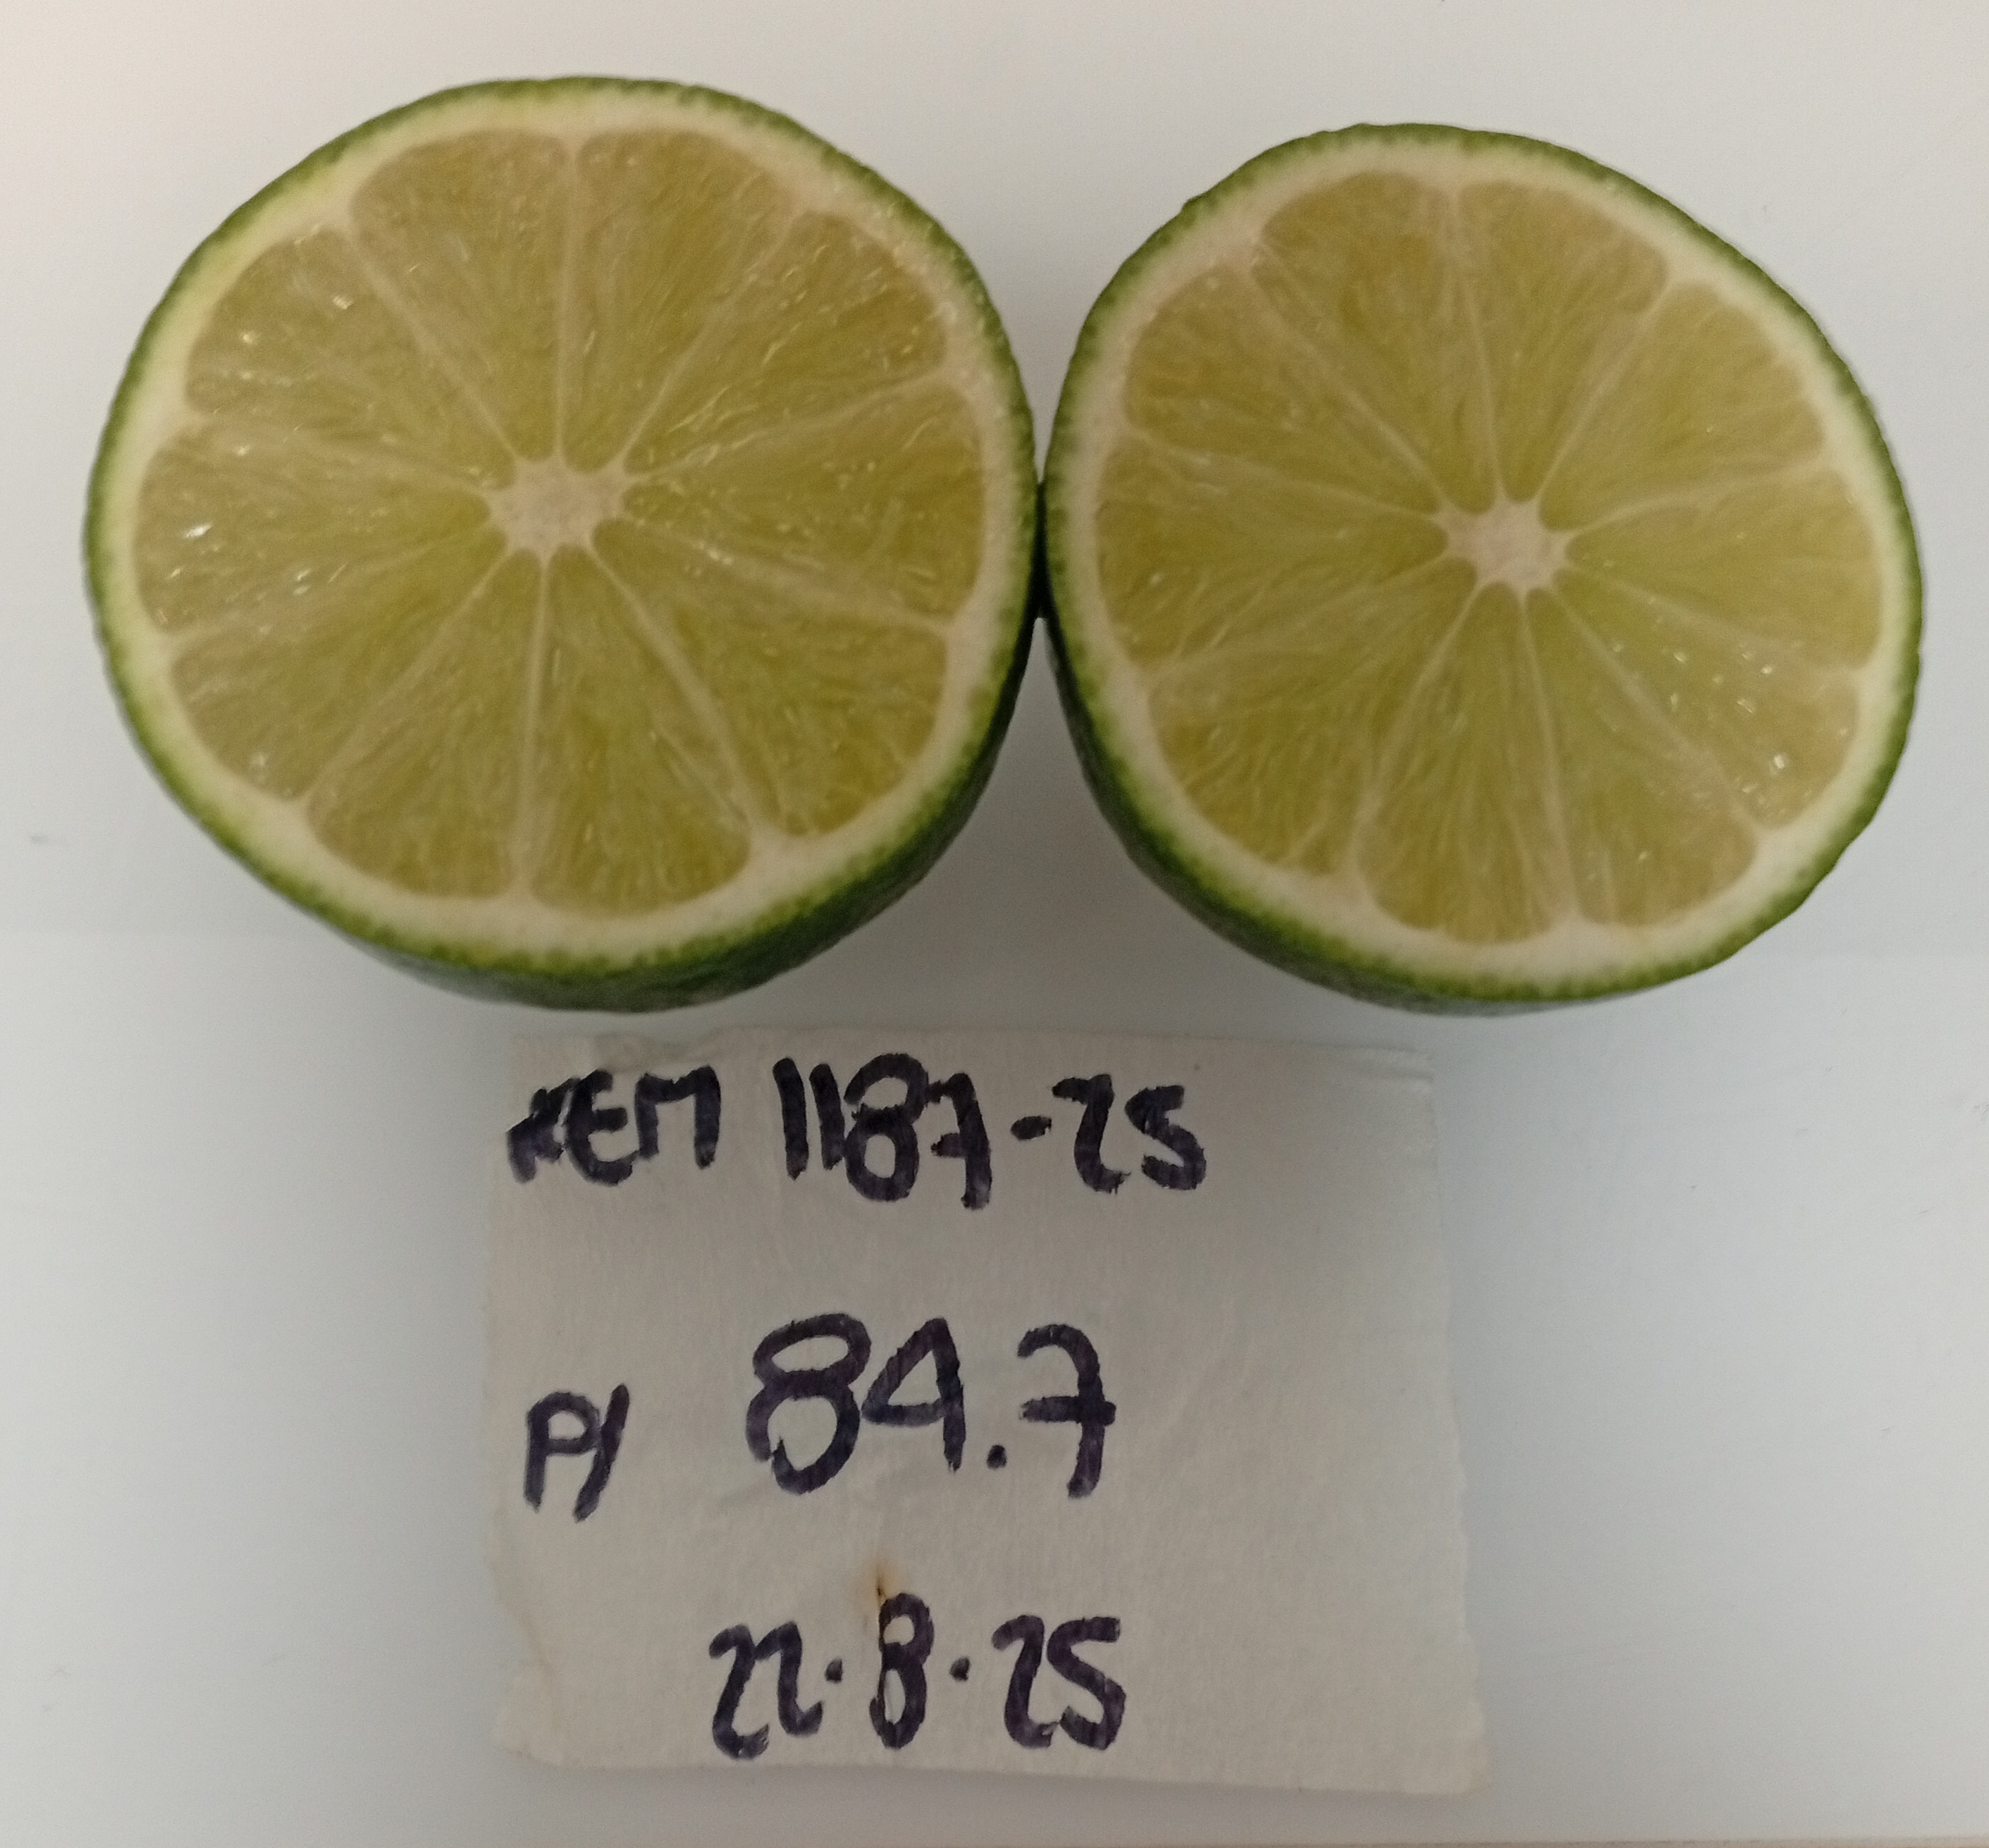 REM 1187-25
P/ 84.7
22.8.25